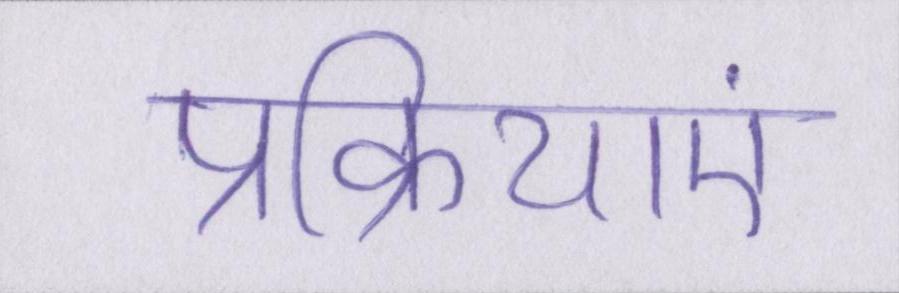 प्रक्रियाएं